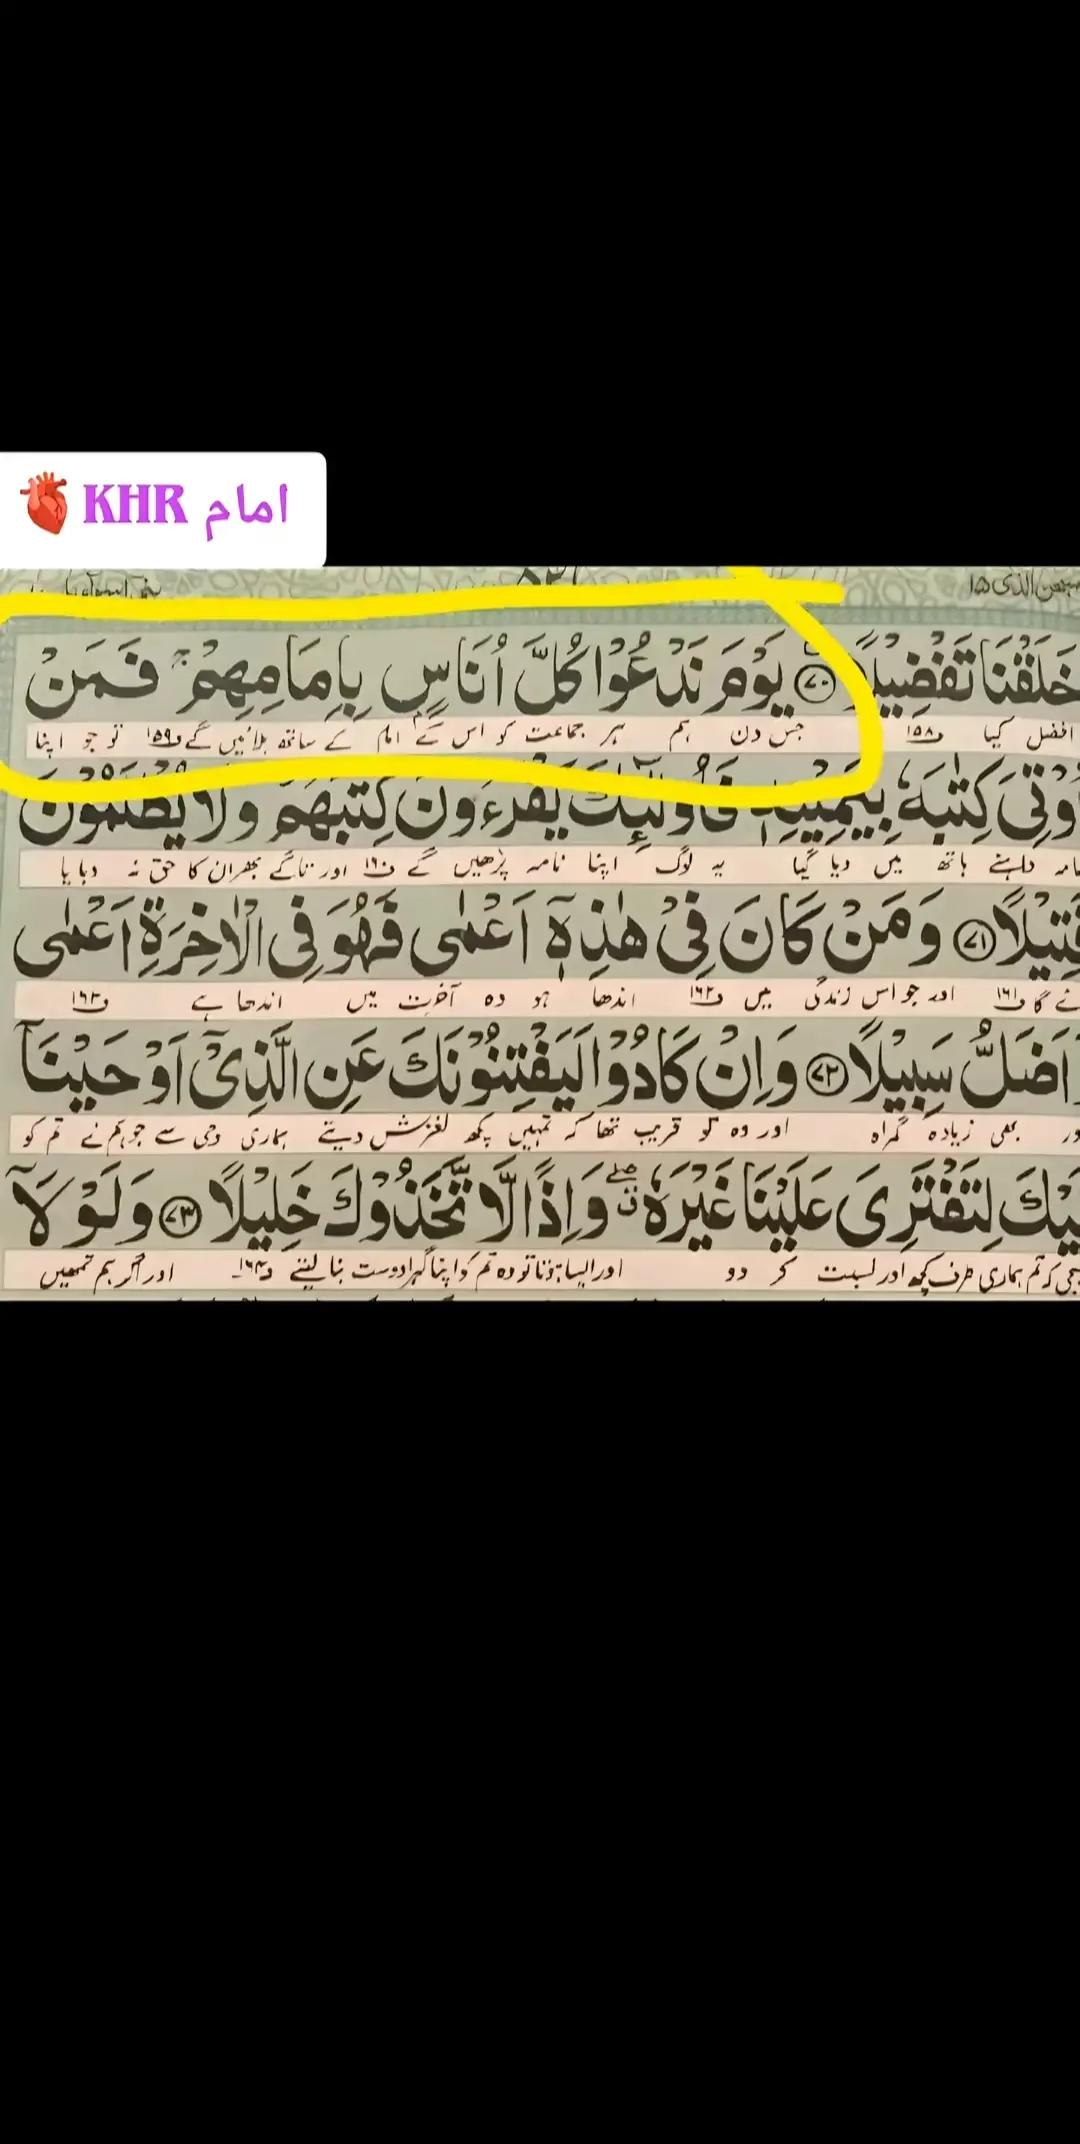 امام KHR
سبحٰن الذی ۱۵
خَلَقْنَا تَفْضِيْلًا ۷۰ يَوْمَ نَدْعُوْا كُلَّ اُنَاسٍۭ بِاِمَامِهِمْ ۚ فَمَنْ
افضل کیا ف۱۵۸ جس دن ہم ہر جماعت کو اس کے امام کے ساتھ بلائیں گے ف۱۵۹ تو جو اپنا
اُوْتِيَ كِتٰبَهٗ بِيَمِيْنِهٖ فَاُولٰٓئِكَ يَقْرَءُوْنَ كِتٰبَهُمْ وَلَا يُظْلَمُوْنَ
نامہ داہنے ہاتھ میں دیا گیا یہ لوگ اپنا نامہ پڑھیں گے ف۱۶۰ اور تاگے بھر ان کا حق نہ دبایا
فَتِيْلًا ۷۱ وَمَنْ كَانَ فِيْ هٰذِهٖٓ اَعْمٰى فَهُوَ فِي الْاٰخِرَةِ اَعْمٰى
ئے گا ف۱۶۱ اور جو اس زندگی میں ف۱۶۲ اندھا ہو وہ آخرت میں اندھا ہے ف۱۶۳
وَاَضَلُّ سَبِيْلًا ۷۲ وَاِنْ كَادُوْا لَيَفْتِنُوْنَكَ عَنِ الَّذِيْٓ اَوْحَيْنَآ
اور بھی زیادہ گمراہ اور وہ تو قریب تھا کہ تمہیں کچھ لغزش دیتے ہماری وحی سے جو ہم نے تم کو
اِلَيْكَ لِتَفْتَرِيَ عَلَيْنَا غَيْرَهٗ ۖ وَاِذًا لَّاتَّخَذُوْكَ خَلِيْلًا ۷۳ وَلَوْ لَآ
بھیجی کہ تم ہماری طرف کچھ اور نسبت کر دو اور ایسا ہوتا تو وہ تم کو اپنا گہرا دوست بنا لیتے ف۱۶۴ اور اگر ہم تمہیں